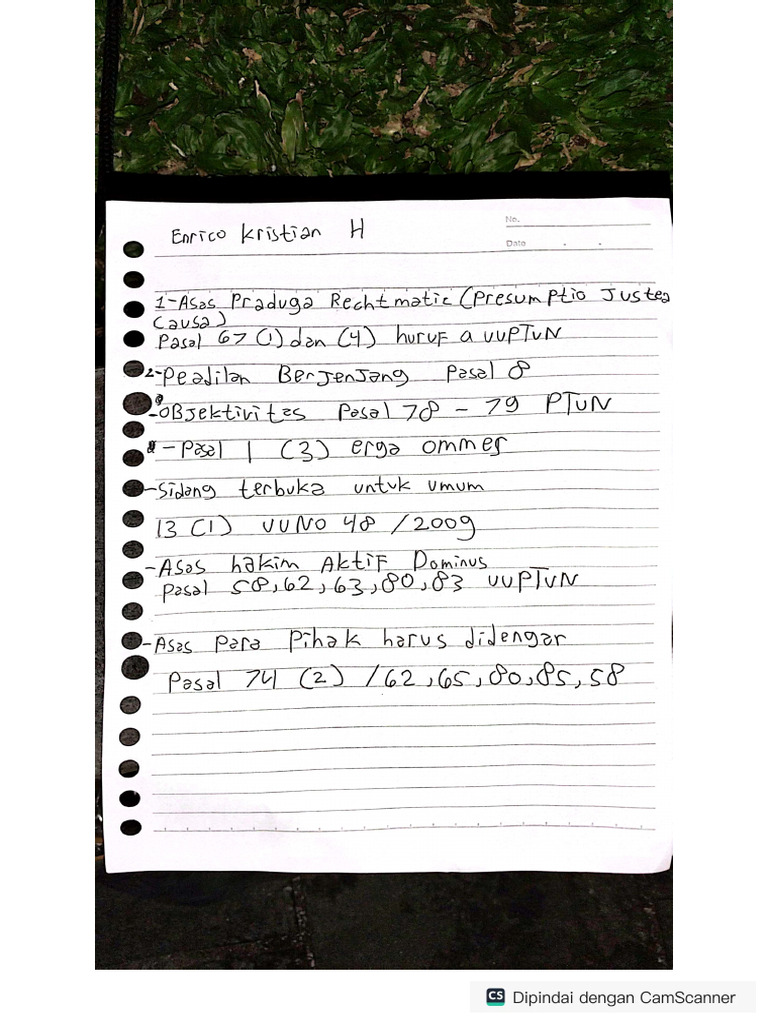 No.
Enrico Kristian H
Date
1-Asas Praduga Rechtmatic (Presumptio Justea
Causa)
Pasal 67 (1) dan (4) huruf a UUPTUN
2-Peadilan Berjenjang Pasal 8
-Objektivitas Pasal 78 - 79 PTUN
-Pasal 1 (3) erga ommes
-Sidang terbuka untuk umum
13 (1) UU NO 48 / 2009
-Asas hakim Aktif Dominus
Pasal 58, 62, 63, 80, 83 UUPTUN
-Asas Para Pihak harus didengar
Pasal 74 (2) / 62, 65, 80, 85, 58
CS Dipindai dengan CamScanner